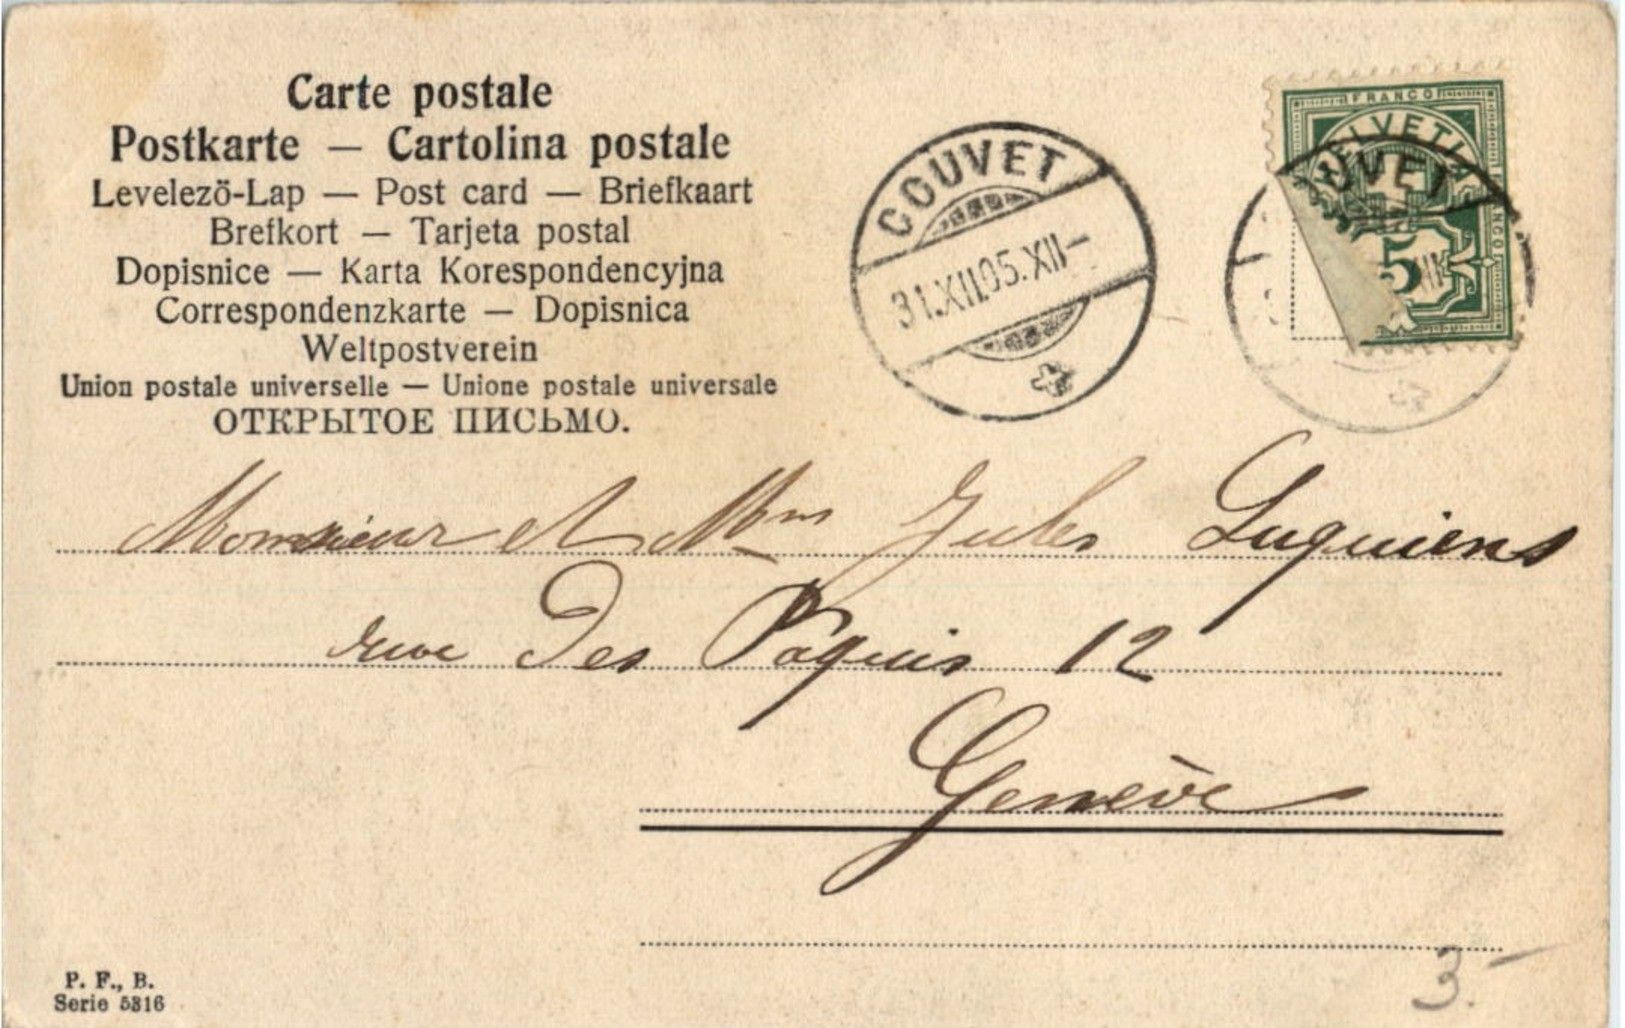 Carte postale
Postkarte — Cartolina postale
Levelezö-Lap — Post card — Briefkaart
Brefkort — Tarjeta postal
Dopisnice — Karta Korespondencyjna
Correspondenzkarte — Dopisnica
Weltpostverein
Union postale universelle — Unione postale universale
ОТКРЫТОЕ ПИСЬМО.
COUVET
31.XII.05.XII—
FRANCO
HELVETIA
UVET
5
XII
Monsieur et Mme Jules Luquiens
rue des Pâquis 12
Genève
P. F., B.
Serie 5316
3.—